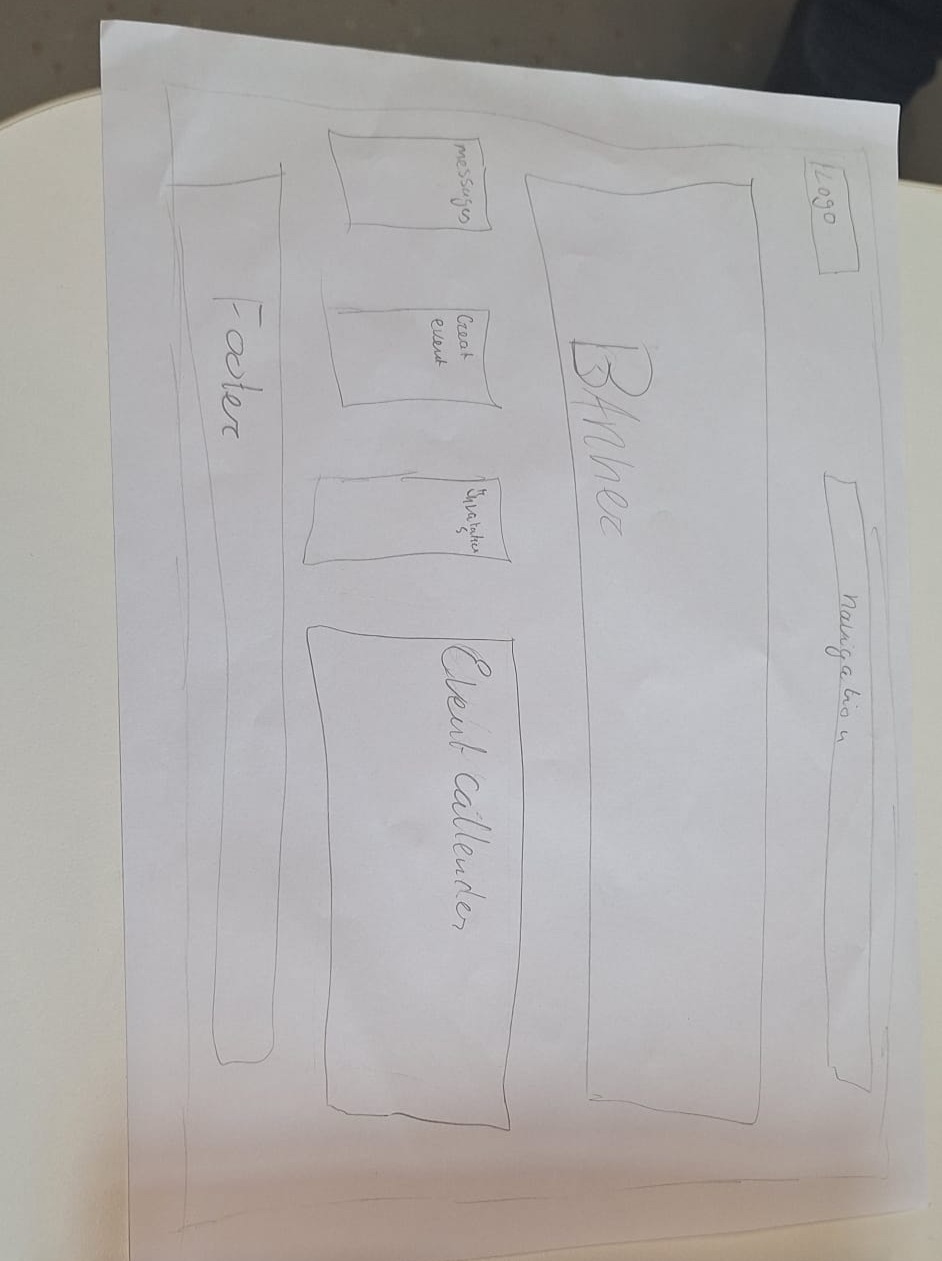 Logo
navigation
BANner
messages
Creat
event
Event callender
Footer